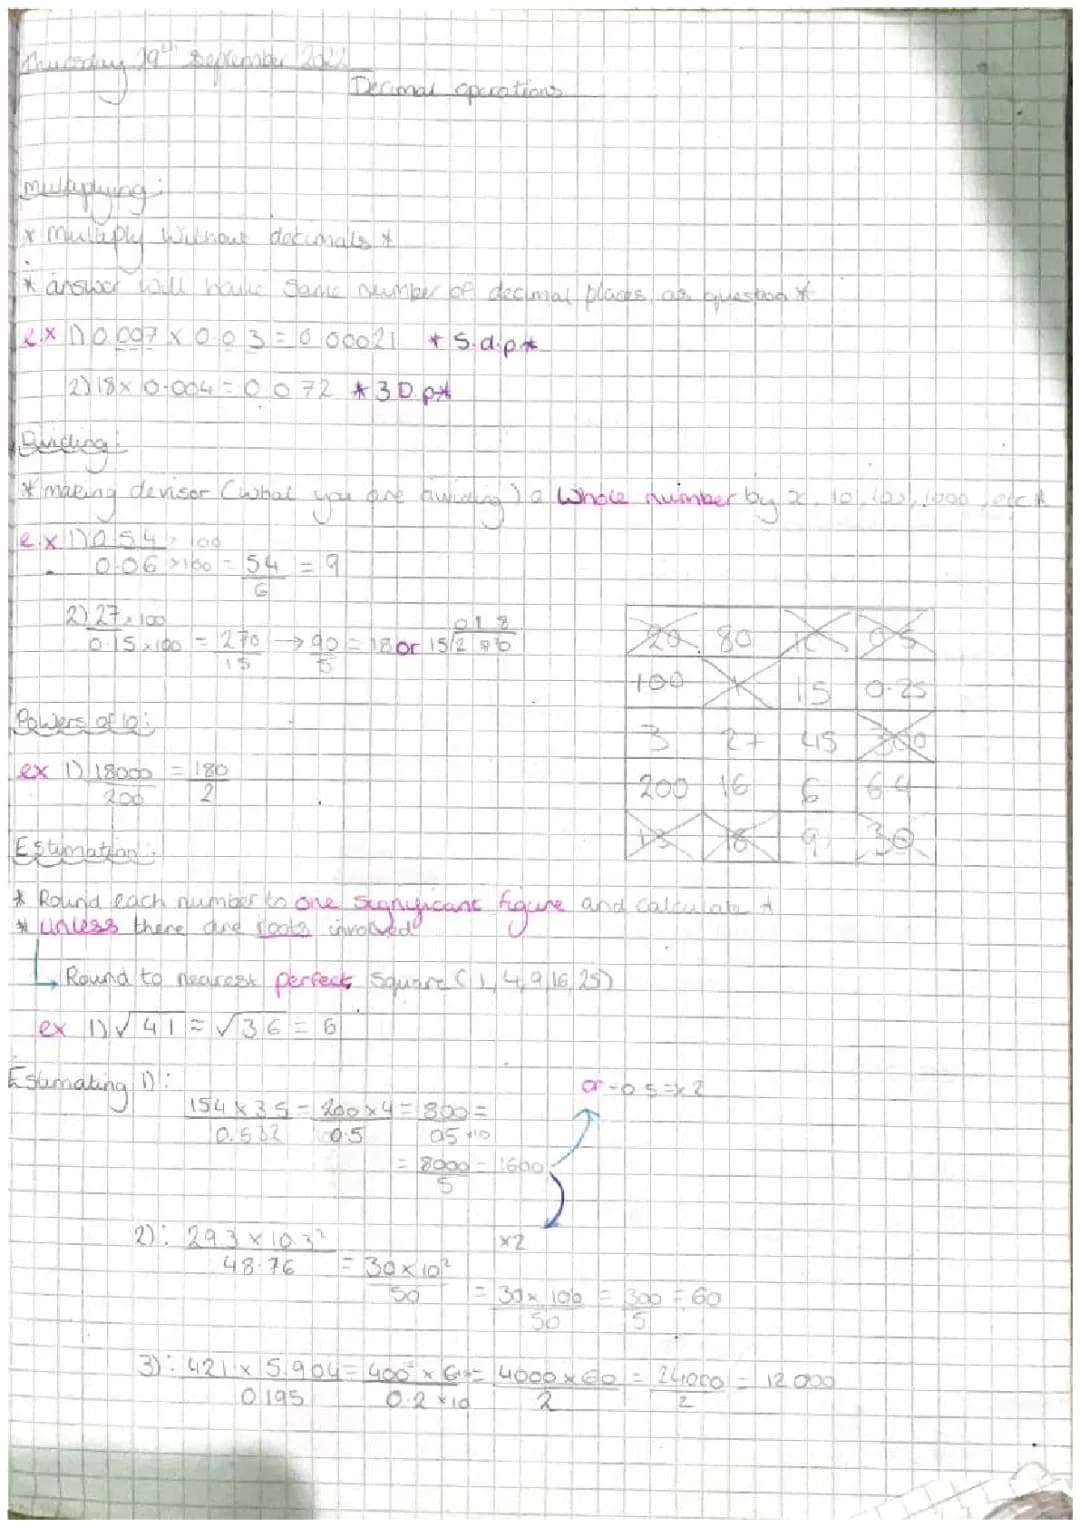 Thursday 29th September 2022
Decimal operations
Multiplying:
* Multiply without decimals *
* answer will have same number of decimal places as question *
e.x 1) 0.007 x 0.03 = 0.00021 * 5.d.p *
2) 18 x 0.004 = 0.072 * 3 D.p *
Dividing:
* making devisor (what you are dividing) a whole number by x, 10, 100, 1000, etc *
e.x 1) 0.54 x 100
0.06 x100 = 54 = 9
6
2) 27 x 100
0.15 x100 = 270 → 90 = 18 or 15
15 5
20 80 0.5
100 1 15 0.25
3 27 45 300
200 16 6 64
9 30
Powers of 10:
ex 1) 18000 = 180
200 2
Estimation:
* Round each number to one significant figure and calculate *
* unless there are roots involved
Round to nearest perfect square (1, 4, 9, 16, 25)
ex 1) √41 ≈ √36 = 6
Estimating 1):
or ÷0.5 = x2
154 x 3.5 = 200 x 4 = 800 =
0.532 0.5 0.5 x10
= 8000 = 1600
5
x2
2): 29.3 x 10.3²
48.76 = 30 x 10²
50 = 30 x 100 = 300 = 60
50 5
3): 421 x 5.904 = 400 x 6 = 4000 x 60 = 24000 = 12 000
0.195 0.2 x10 2 2